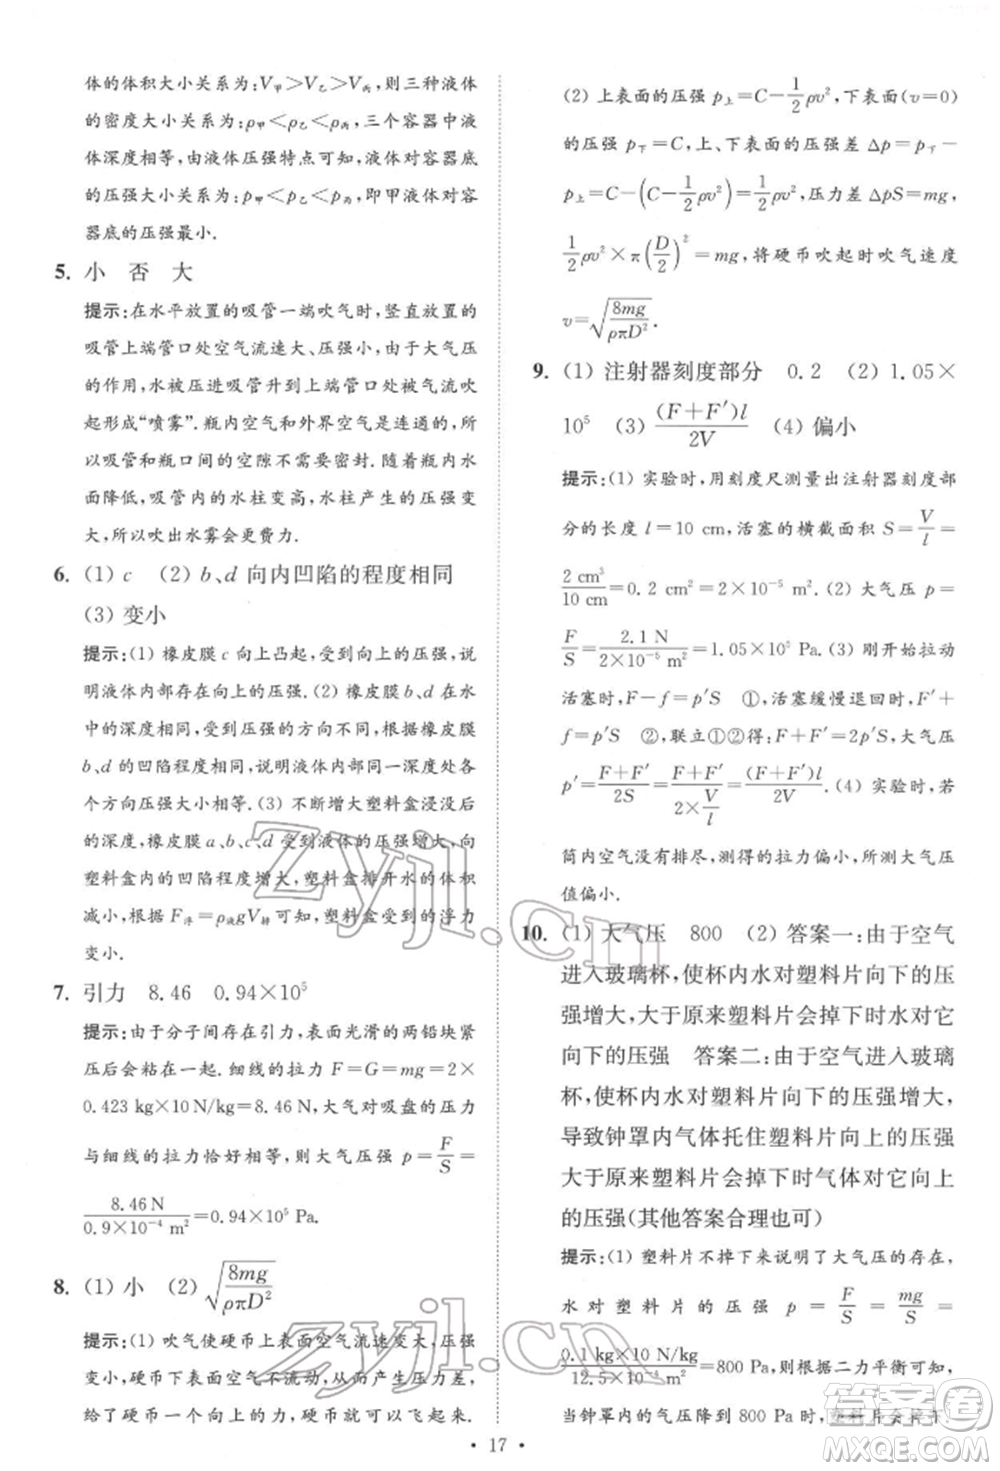 体的体积大小关系为:V甲>V乙>V丙,则三种液体
的密度大小关系为:ρ甲<ρ乙<ρ丙,三个容器中液
体深度相等,由液体压强特点可知,液体对容器底
的压强大小关系为:p甲<p乙<p丙,即甲液体对容
器底的压强最小.
5. 小 否 大
提示:在水平放置的吸管一端吹气时,竖直放置的
吸管上端管口处空气流速大、压强小,由于大气压
的作用,水被压进吸管升到上端管口处被气流吹
起形成“喷雾”.瓶内空气和外界空气是相通的,所
以吸管和瓶口间的空隙不要密封.随着瓶内水
面降低,吸管内的水柱变高,水柱产生的压强变
大,所以吹出水雾会更费力.
6. (1) c (2) b、d 向内凹陷的程度相同
(3) 变小
提示:(1) 橡皮膜 c 向上凸起,受到向上的压强,说
明液体内部存在向上的压强.(2) 橡皮膜 b、d 在水
中的深度相同,受到压强的方向不同,根据橡皮膜
b、d 的凹陷程度相同,说明液体内部同一深度处各
个方向压强大小相等.(3) 不断增大塑料盒浸没后
的深度,橡皮膜 a、b、c、d 受到液体的压强增大,向
塑料盒内的凹陷程度增大,塑料盒排开水的体积
减小,根据 F浮=ρ液gV排 可知,塑料盒受到的浮力
变小.
7. 引力 8.46 0.94×10⁵
提示:由于分子间存在引力,表面光滑的两铅块紧
压后会粘在一起.细线的拉力 F=G=mg=2×
0.423 kg×10 N/kg=8.46 N,大气对吸盘的压力
与细线的拉力恰好相等,则大气压强 p=F/S=
8.46 N/(0.9×10⁻⁴ m²)=0.94×10⁵ Pa.
8. (1) 小 (2) √(8mg/(ρπD²))
提示:(1) 吹气使硬币上表面空气流速变大,压强
变小;硬币下面空气不流动,压强不变,这样气流就
给了硬币一个向上的压强差,于是硬币向上飞起来.
(2) 上表面的压强 p上=C−(1/2)ρv²,下表面(v=0)
的压强 p下=C,上、下表面的压强差 Δp=p下−
p上=C−(C−(1/2)ρv²)=(1/2)ρv²,压力差 ΔpS=mg,
(1/2)ρv²×π(D/2)²=mg,将硬币吹起时吹气速度
v=√(8mg/(ρπD²)).
9. (1) 注射器刻度部分 0.2 (2) 1.05×
10⁵ (3) (F+F′)l/(2V) (4) 偏小
提示:(1) 实验时,用刻度尺测量出注射器刻度部
分的长度 l=10 cm,活塞的横截面积 S=V/l=
2 cm³/10 cm=0.2 cm²=2×10⁻⁵ m².(2) 大气压 p=
F/S=2.1 N/(2×10⁻⁵ m²)=1.05×10⁵ Pa.(3) 刚开始拉动
活塞,F−f=p′S ①,活塞缓慢退回时,F′+
f=p′S ②,联立①②得:F+F′=2p′S,大气压
p′=(F+F′)/(2S)=(F+F′)/(2×V/l)=(F+F′)l/(2V).(4) 实验时,若
筒内空气没有排尽,测得的拉力偏小,所测大气压
值偏小.
10. (1) 大气压 800 (2) 答案一:由于空气
进入玻璃杯,使杯内水对塑料片向下的压
强增大,大于原来塑料片会掉下时水对它
向下的压强 答案二:由于空气进入玻璃
杯,使杯内水对塑料片向下的压强增大,
导致钟罩内气体托住塑料片向上的压强
大于原来塑料片会掉下时气体对它向上
的压强(其他答案合理也可)
提示:(1) 塑料片不掉下来说明了大气压的存在,
水对塑料片的压强 p=F/S=mg/S=
0.1 kg×10 N/kg/(12.5×10⁻⁴ m²)=800 Pa,则根据二力平衡可知,
当钟罩内的气压降到 800 Pa 时,塑料片会掉下
• 17 •
zyjl.cn
zyjl.cn
答案圈
MXQE.COM